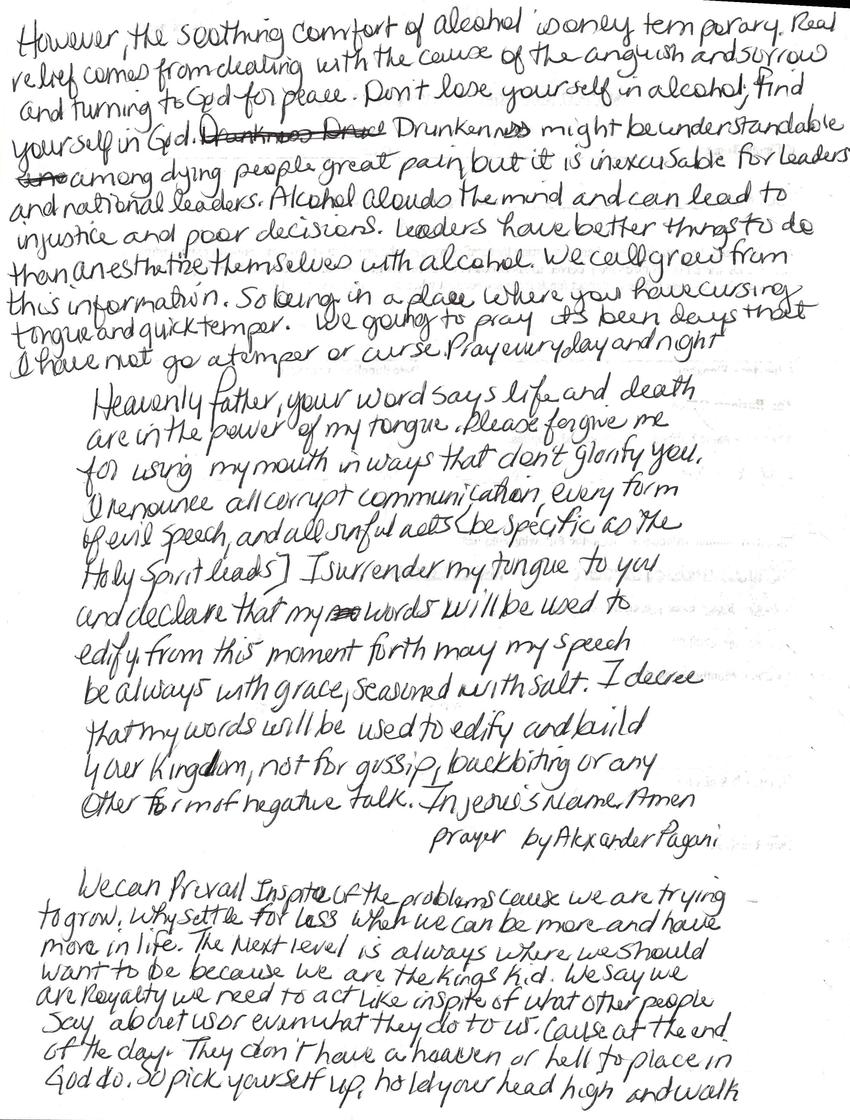 However, the soothing comfort of alcohol is oney temporary. Real
relief comes from dealing with the cause of the anguish and sorrow
and turning to God for peace. Don't lose yourself in alcohol; find
yourself in God. Drunkness Drunkenness might be understandable
among dying people great pain, but it is inexcusable for leaders
and national leaders. Alcohol clouds the mind and can lead to
injustice and poor decisions. Leaders have better things to do
than anesthetize themselves with alcohol. We call grow from
this information. So being in a place where you have cursing
tongue and quick temper. We going to pray it's been days that
I have not go a temper or curse. Pray every day and night
Heavenly Father, your word says life and death
are in the power of my tongue. Please forgive me
for using my mouth in ways that don't glorify you.
I renounce all corrupt communication, every form
of evil speech, and all sinful acts [be specific as the
Holy Spirit leads] I surrender my tongue to you
and declare that my words will be used to
edify. from this moment forth may my speech
be always with grace, seasoned with salt. I decree
that my words will be used to edify and build
your Kingdom, not for gossip, backbiting or any
other form of negative talk. In jesus's Name, Amen
prayer by Alexander Pagani
We can Prevail Inspite of the problems cause we are trying
to grow. Why settle for less when we can be more and have
more in life. The Next level is always where we should
want to be because we are the Kings Kid. We say we
are Royalty we need to act like inspite of what other people
Say about us or even what they do to us. Cause at the end
of the day. They don't have a heaven or hell to place in
God do. So pick yourself up, hold your head high and walk